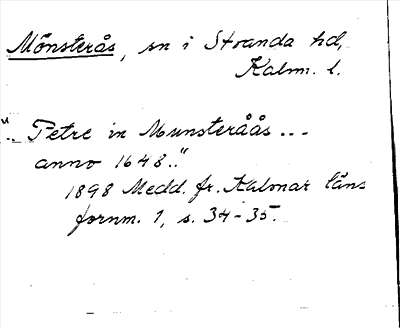 Mönsterås, sn i Stranda hd,
Kalm. l.
".. Petre in Munsteråås ...
anno 1648.."
1898 Medd. fr. Kalmar läns
fornm. 1, s. 34-35.